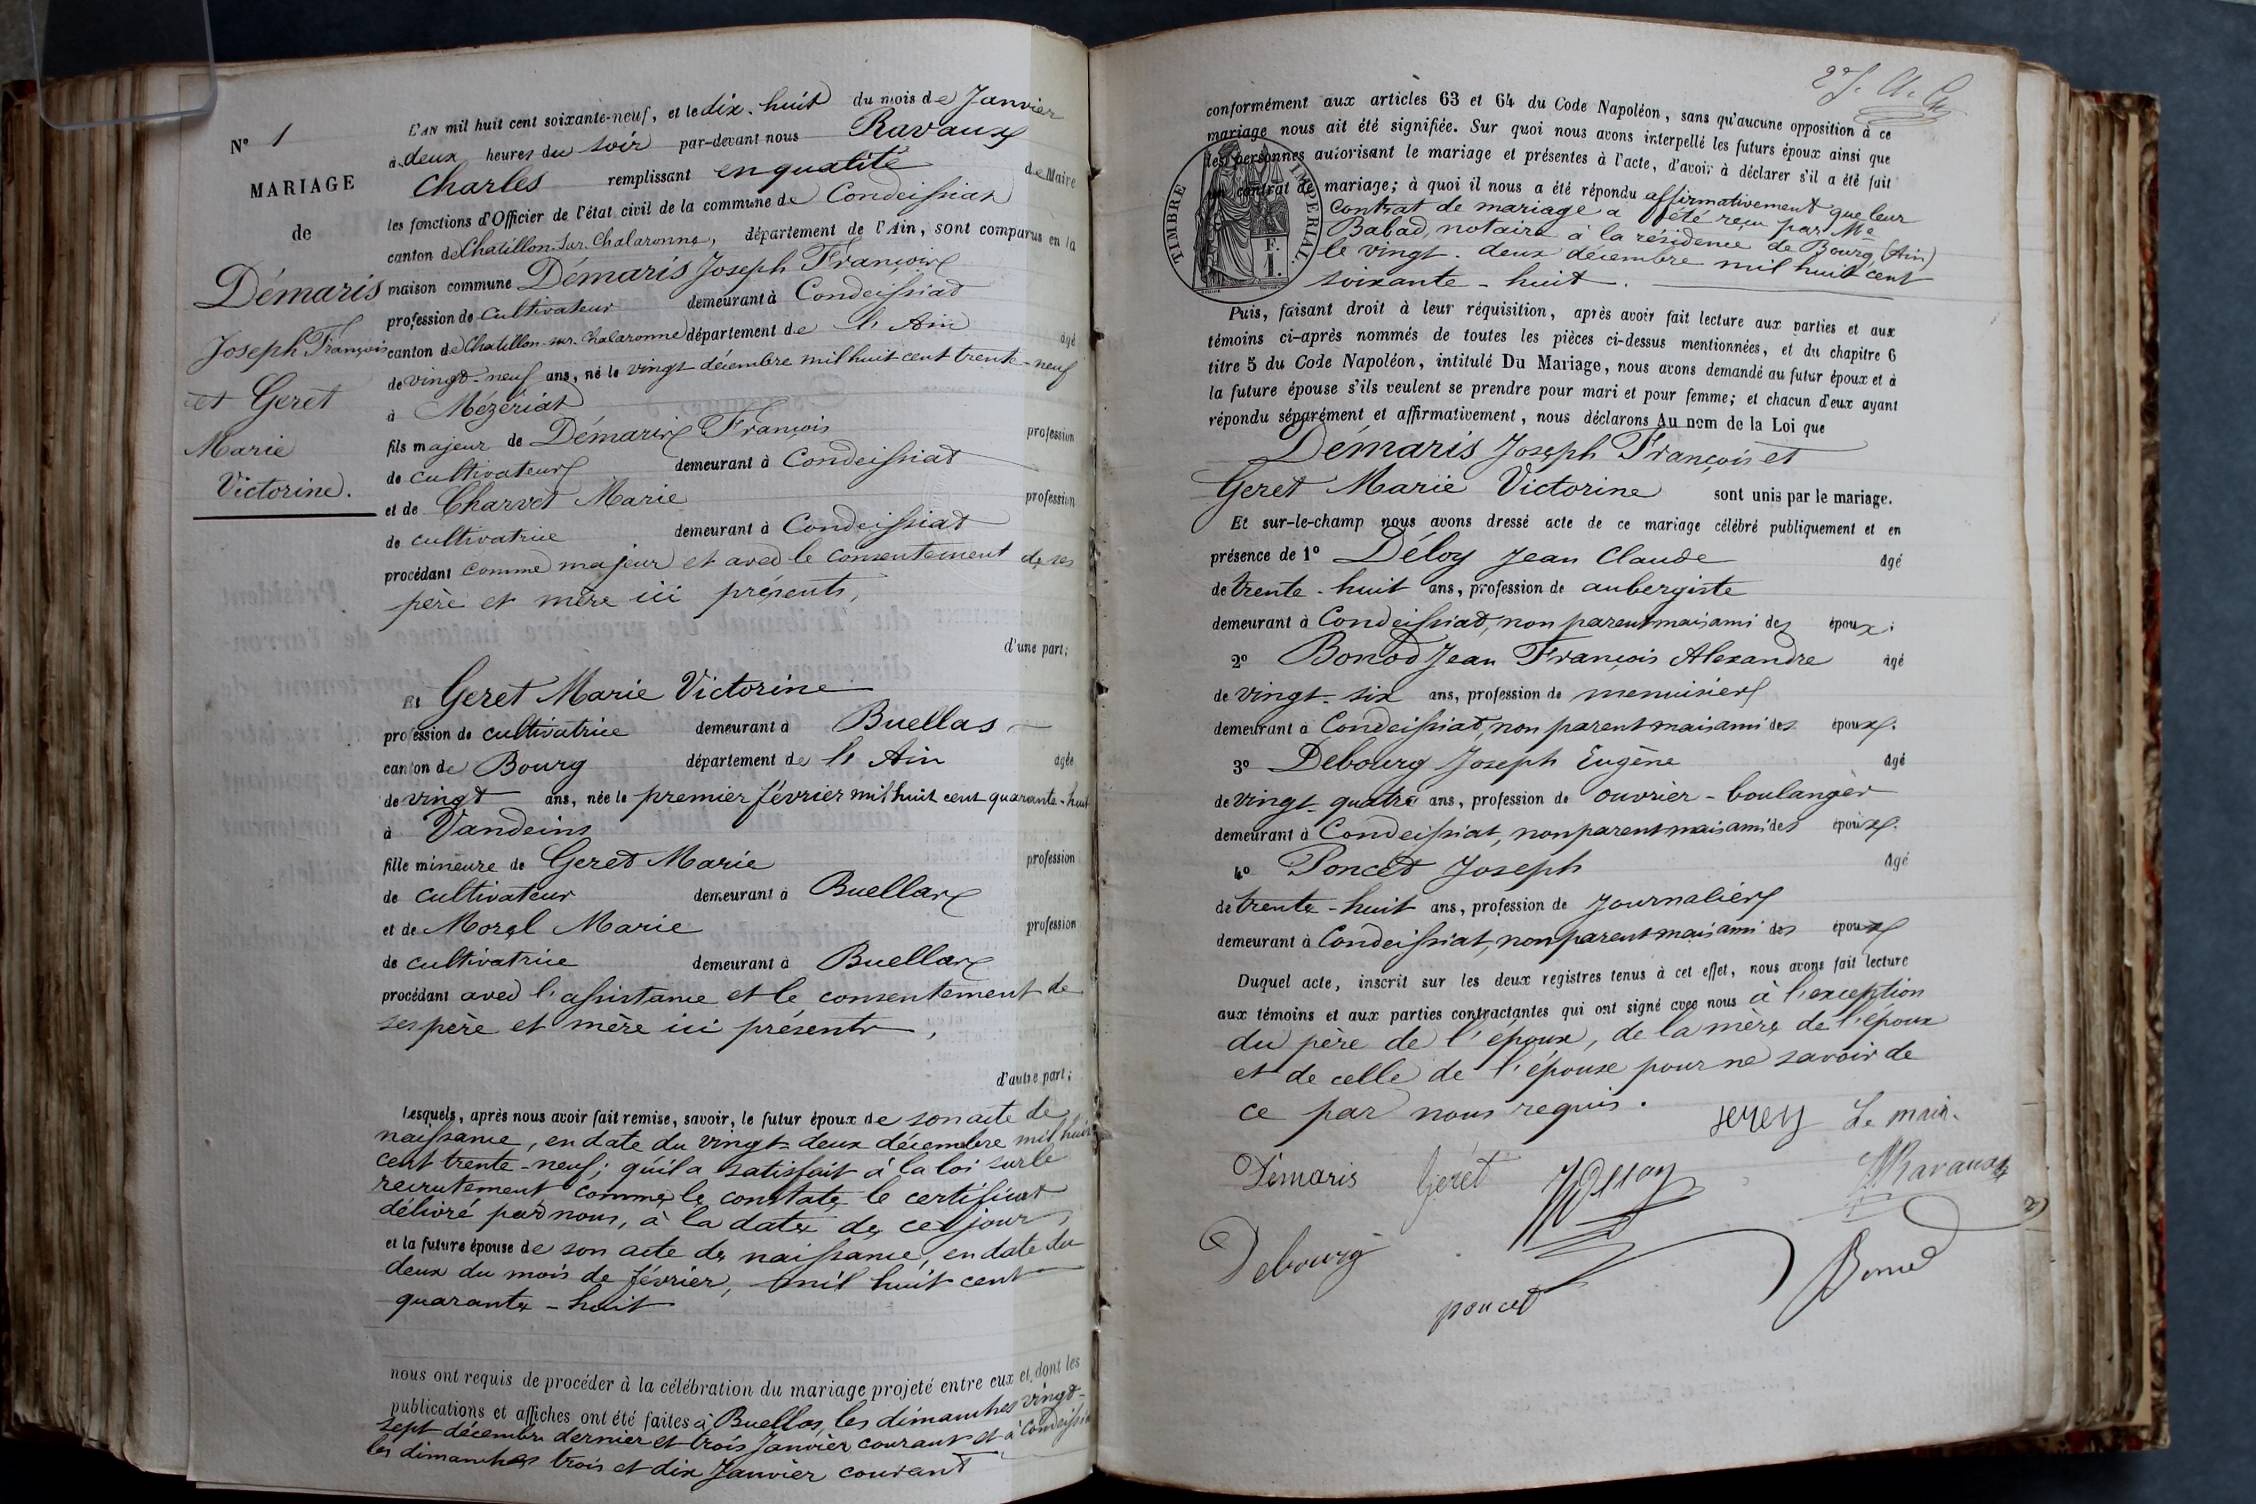 N° 1
MARIAGE
de
Démaris
Joseph François
et Geret
Marie
Victorine.
L'AN mil huit cent soixante-neuf, et le dix-huit du mois de Janvier
à deux heures du soir par-devant nous Ravaux
Charles remplissant en qualité de Maire
les fonctions d'Officier de l'état civil de la commune de Condeissiat
canton de Chatillon-sur-Chalaronne, département de l'Ain, sont comparus en la
maison commune Démaris Joseph François
profession de cultivateur demeurant à Condeissiat
canton de Chatillon-sur-Chalaronne département de l'Ain agé
de vingt-neuf ans, né le vingt décembre mil huit cent trente-neuf
à Mézériat
fils majeur de Démaris François profession
de cultivateur demeurant à Condeissiat
et de Charvet Marie profession
de cultivatrice demeurant à Condeissiat
procédant comme majeur et avec le consentement de ses
père et mère ici présents,
d'une part;
Et Geret Marie Victorine
profession de cultivatrice demeurant à Buellas
canton de Bourg département de l'Ain agée
de vingt ans, née le premier février mil huit cent quarante-huit
à Vandeins
fille mineure de Geret Marie profession
de cultivateur demeurant à Buellas
et de Morel Marie profession
de cultivatrice demeurant à Buellas
procédant avec l'assistance et le consentement de
ses père et mère ici présents,
d'autre part;
Lesquels, après nous avoir fait remise, savoir, le futur époux de son acte de
naissance, en date du vingt-deux décembre mil huit
cent trente-neuf; qu'il a satisfait à la loi sur le
recrutement comme le constate le certificat
délivré par nous, à la date de ce jour,
et la future épouse de son acte de naissance, en date du
deux du mois de février, mil huit cent
quarante-huit
nous ont requis de procéder à la célébration du mariage projeté entre eux et dont les
publications et affiches ont été faites à Buellas, les dimanches vingt-
sept décembre dernier et trois Janvier courant et à Condeissiat
les dimanches trois et dix Janvier courant
conformément aux articles 63 et 64 du Code Napoléon, sans qu'aucune opposition à ce
mariage nous ait été signifiée. Sur quoi nous avons interpellé les futurs époux ainsi que
les personnes autorisant le mariage et présentes à l'acte, d'avoir à déclarer s'il a été fait
un contrat de mariage; à quoi il nous a été répondu affirmativement que leur
contrat de mariage a été reçu par Me
Babad, notaire à la résidence de Bourg (Ain)
le vingt-deux décembre mil huit cent
soixante-huit.
TIMBRE IMPÉRIAL
1 F.
Puis, faisant droit à leur réquisition, après avoir fait lecture aux parties et aux
témoins ci-après nommés de toutes les pièces ci-dessus mentionnées, et du chapitre 6
titre 5 du Code Napoléon, intitulé Du Mariage, nous avons demandé au futur époux et à
la future épouse s'ils veulent se prendre pour mari et pour femme; et chacun d'eux ayant
répondu séparément et affirmativement, nous déclarons Au nom de la Loi que
Démaris Joseph François et
Geret Marie Victorine sont unis par le mariage.
Et sur-le-champ nous avons dressé acte de ce mariage célébré publiquement et en
présence de 1° Déloy Jean Claude agé
de trente-huit ans, profession de aubergiste
demeurant à Condeissiat, non parent mais ami des époux;
2° Bonod Jean François Alexandre agé
de vingt-six ans, profession de menuisier
demeurant à Condeissiat, non parent mais ami des époux.
3° Debourg Joseph Eugène agé
de vingt-quatre ans, profession de ouvrier-boulanger
demeurant à Condeissiat, non parent mais ami des époux.
4° Poncet Joseph agé
de trente-huit ans, profession de Journalier
demeurant à Condeissiat, non parent mais ami des époux
Duquel acte, inscrit sur les deux registres tenus à cet effet, nous avons fait lecture
aux témoins et aux parties contractantes qui ont signé avec nous à l'exception
du père de l'époux, de la mère de l'époux
et de celle de l'épouse pour ne savoir de
ce par nous requis.
Le maire
Démaris Geret Ravaux
Debourg
poncet